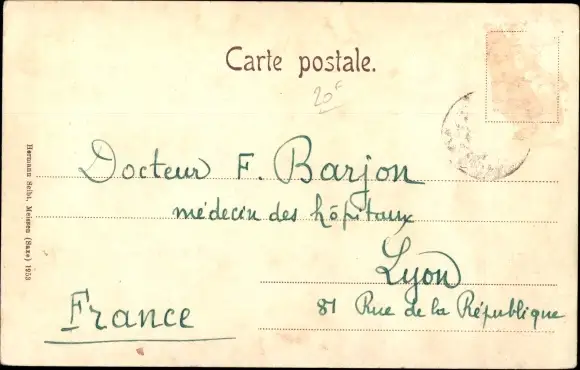 Carte postale.
20F
Docteur F. Barjon
médecin des hôpitaux
Lyon
81 Rue de la République
France
Hermann Seibt, Meissen (Saxe) 1953